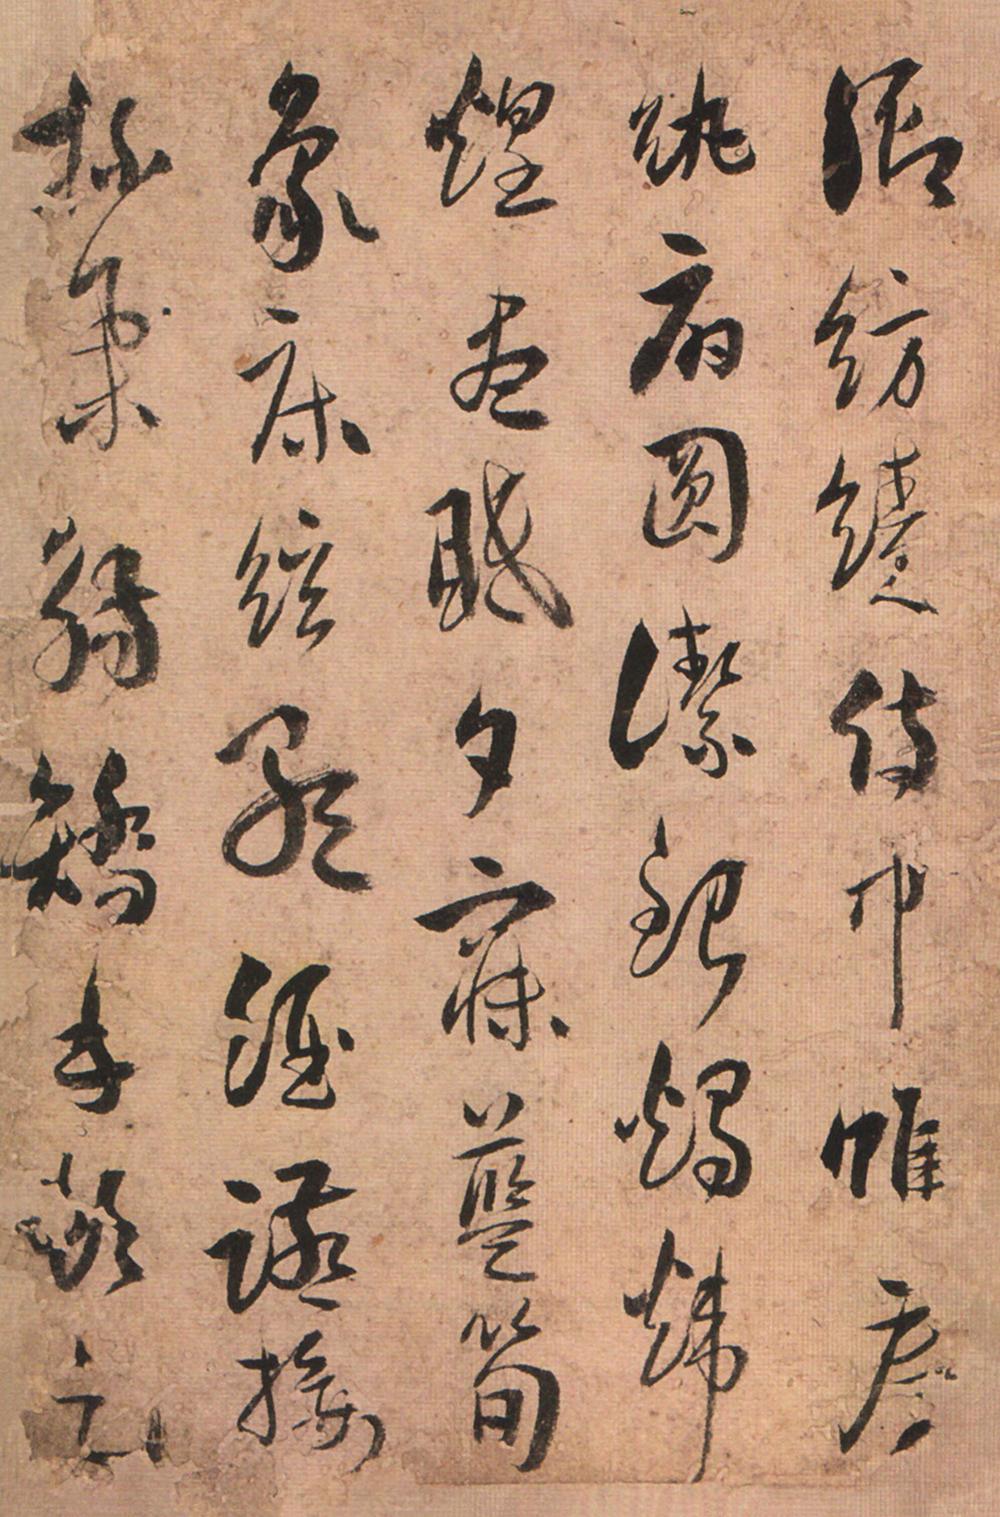 御紡績侍巾帷房
紈扇圓潔銀燭煒
煌晝眠夕寐藍筍
象床絃歌酒讌接
杯舉觴矯手頓足